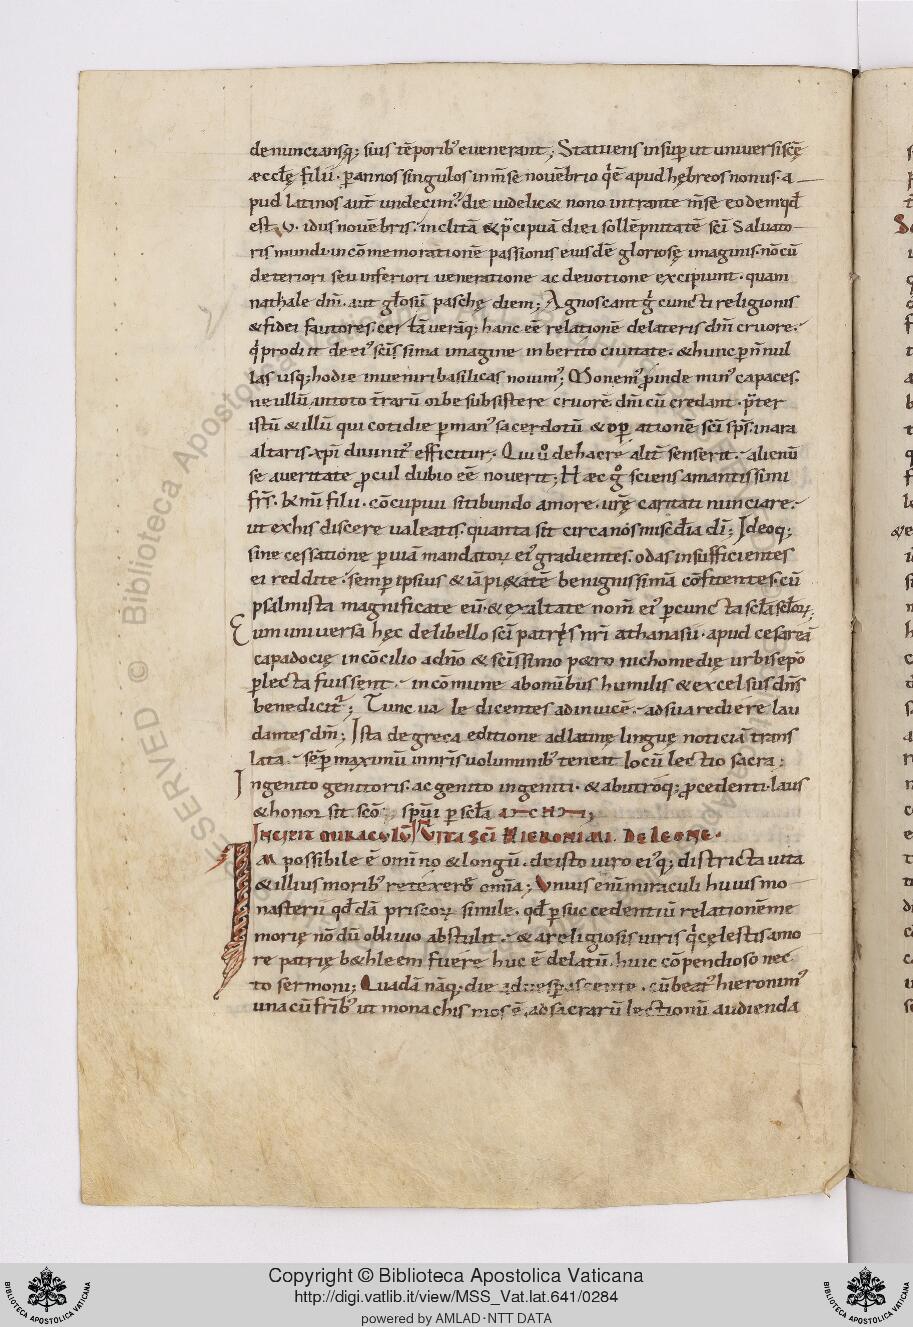 denunciansq; suis tẽporib; euenerant; Statuens insup ut uniuersi scẽ
æcclę filii. p annos singulos in mse nouẽbrio q̇ ẽ apud hębreos nonus. a
pud latinos aut̄ undecim; die uidelic& nono intrante mse eodem qđ
est. v. idus nouẽbris. inclitā & p̄cipuā diei sollẽpnitatẽ sc̄i Saluato
ris mundi. in cõmemorationẽ passionis eiusdẽ gloriosę imaginis. nõ cū
deteriori seu inferiori ueneratione ac deuotione excipiunt. quam
nathale dn̄i. aut gl̄osū paschę diem; Agnoscant g̊ cuncti religionis
& fidei fautores. cer tā uerāq; hanc eẽ relationẽ de lateris dn̄i cruore.
q̇ prodiit de ei; sc̄issima imagine in berito ciuitate. & hunc p nñul
las usq; hodie inueniri basilicas nouim; Monem; p̱inde min; capaces.
ne ullū in toto tr̄arū orbe subsistere cruorẽ. dn̄i cū credant. p̄ter
istū & illū qui cotidie p man; sacerdotū & opationẽ sc̄i sp̄s. in ara
altaris. xp̄i diuinit; efficitur. Qui ů de hac re alit̄ senserit. alienū
se a ueritate p̱cul dubio eẽ nouerit; Hæc g̊ sciens amantissimi
fr̄s. & mi filii. cõcupiui sitibundo amore. ur̄ę caritati nunciare.
ut ex his discere ualeatis. quanta sit circa nos misc̄dia dī; Ideoq;
sine cessatione p uiā mandator ei; gradientes. odas insufficientes
ei reddite. semp ipsius & iā pi&atẽ benignissimā cõfitentes. cū
psalmista magnificate eū. & exaltate nom̄ ei; p cuncta sc̄la sc̄lor;
Cum uniuersa hęc de libello sc̄i patris nr̄i athanasii. apud cesareā
capadocię in cõcilio adn̄o & sc̄issimo p&ro nichomedię urbis epo
p̱lecta fuissent. in cõmune ab omibus humilis & excelsus dn̄s
benedicit̄; Tunc ua le dicentes adinuicẽ. ad sua rediere lau
dantes dm̄; Ista de greca editione ad latinę linguę noticiā trans
lata. semp maximū in nr̄is uoluminib; tenet locū lectio sacra;
Ingenito genitoris. ac genito ingeniti. & ab utroq; p̱cedenti. laus
& honor sit sc̄o sp̄ui p sc̄la amen;
Incipit miraculū Vita sc̄i Hieronimi. De leone.
Iam possibile ẽ omi no & longū. de isto uiro ei;q; districta uita
& illius morib; retexere omia; Vnius eni miraculi huius mo
nasterii qđdā priscor simile. qđ p succedentiū relationẽ me
morię nõdū obliuio abstulit. & a religiosis uiris q̇ cęlestis amo
re patrię b&hleem fuere huc ẽ delatū. huic cõpendioso nec
to sermoni; Quadā nāq; die aduespascente. cū beat; hieronim;
una cū frib; ut monachis mos ẽ. ad sacrarū lectionū audienda
Copyright © Biblioteca Apostolica Vaticana
http://digi.vatlib.it/view/MSS_Vat.lat.641/0284
powered by AMLAD·NTT DATA